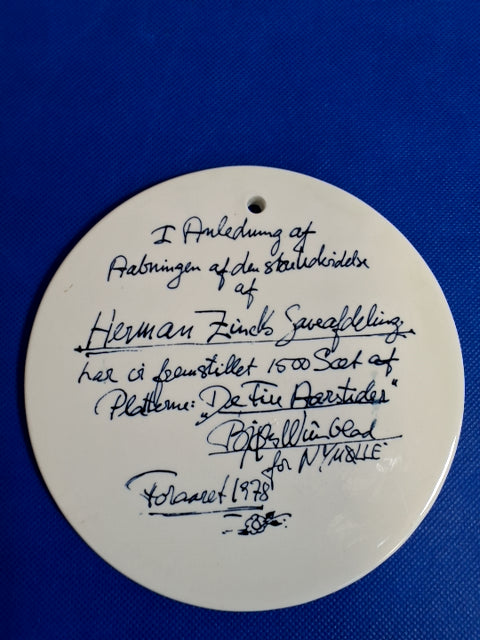 I Anledning af
Aabningen af den
af
Herman Zincks Gaveafdeling
har vi fremstillet 1500 Sæt af
Platterne: „De Fire Aarstider"
Bjørn Wiinblad
for NYMØLLE
Foraaret 1978